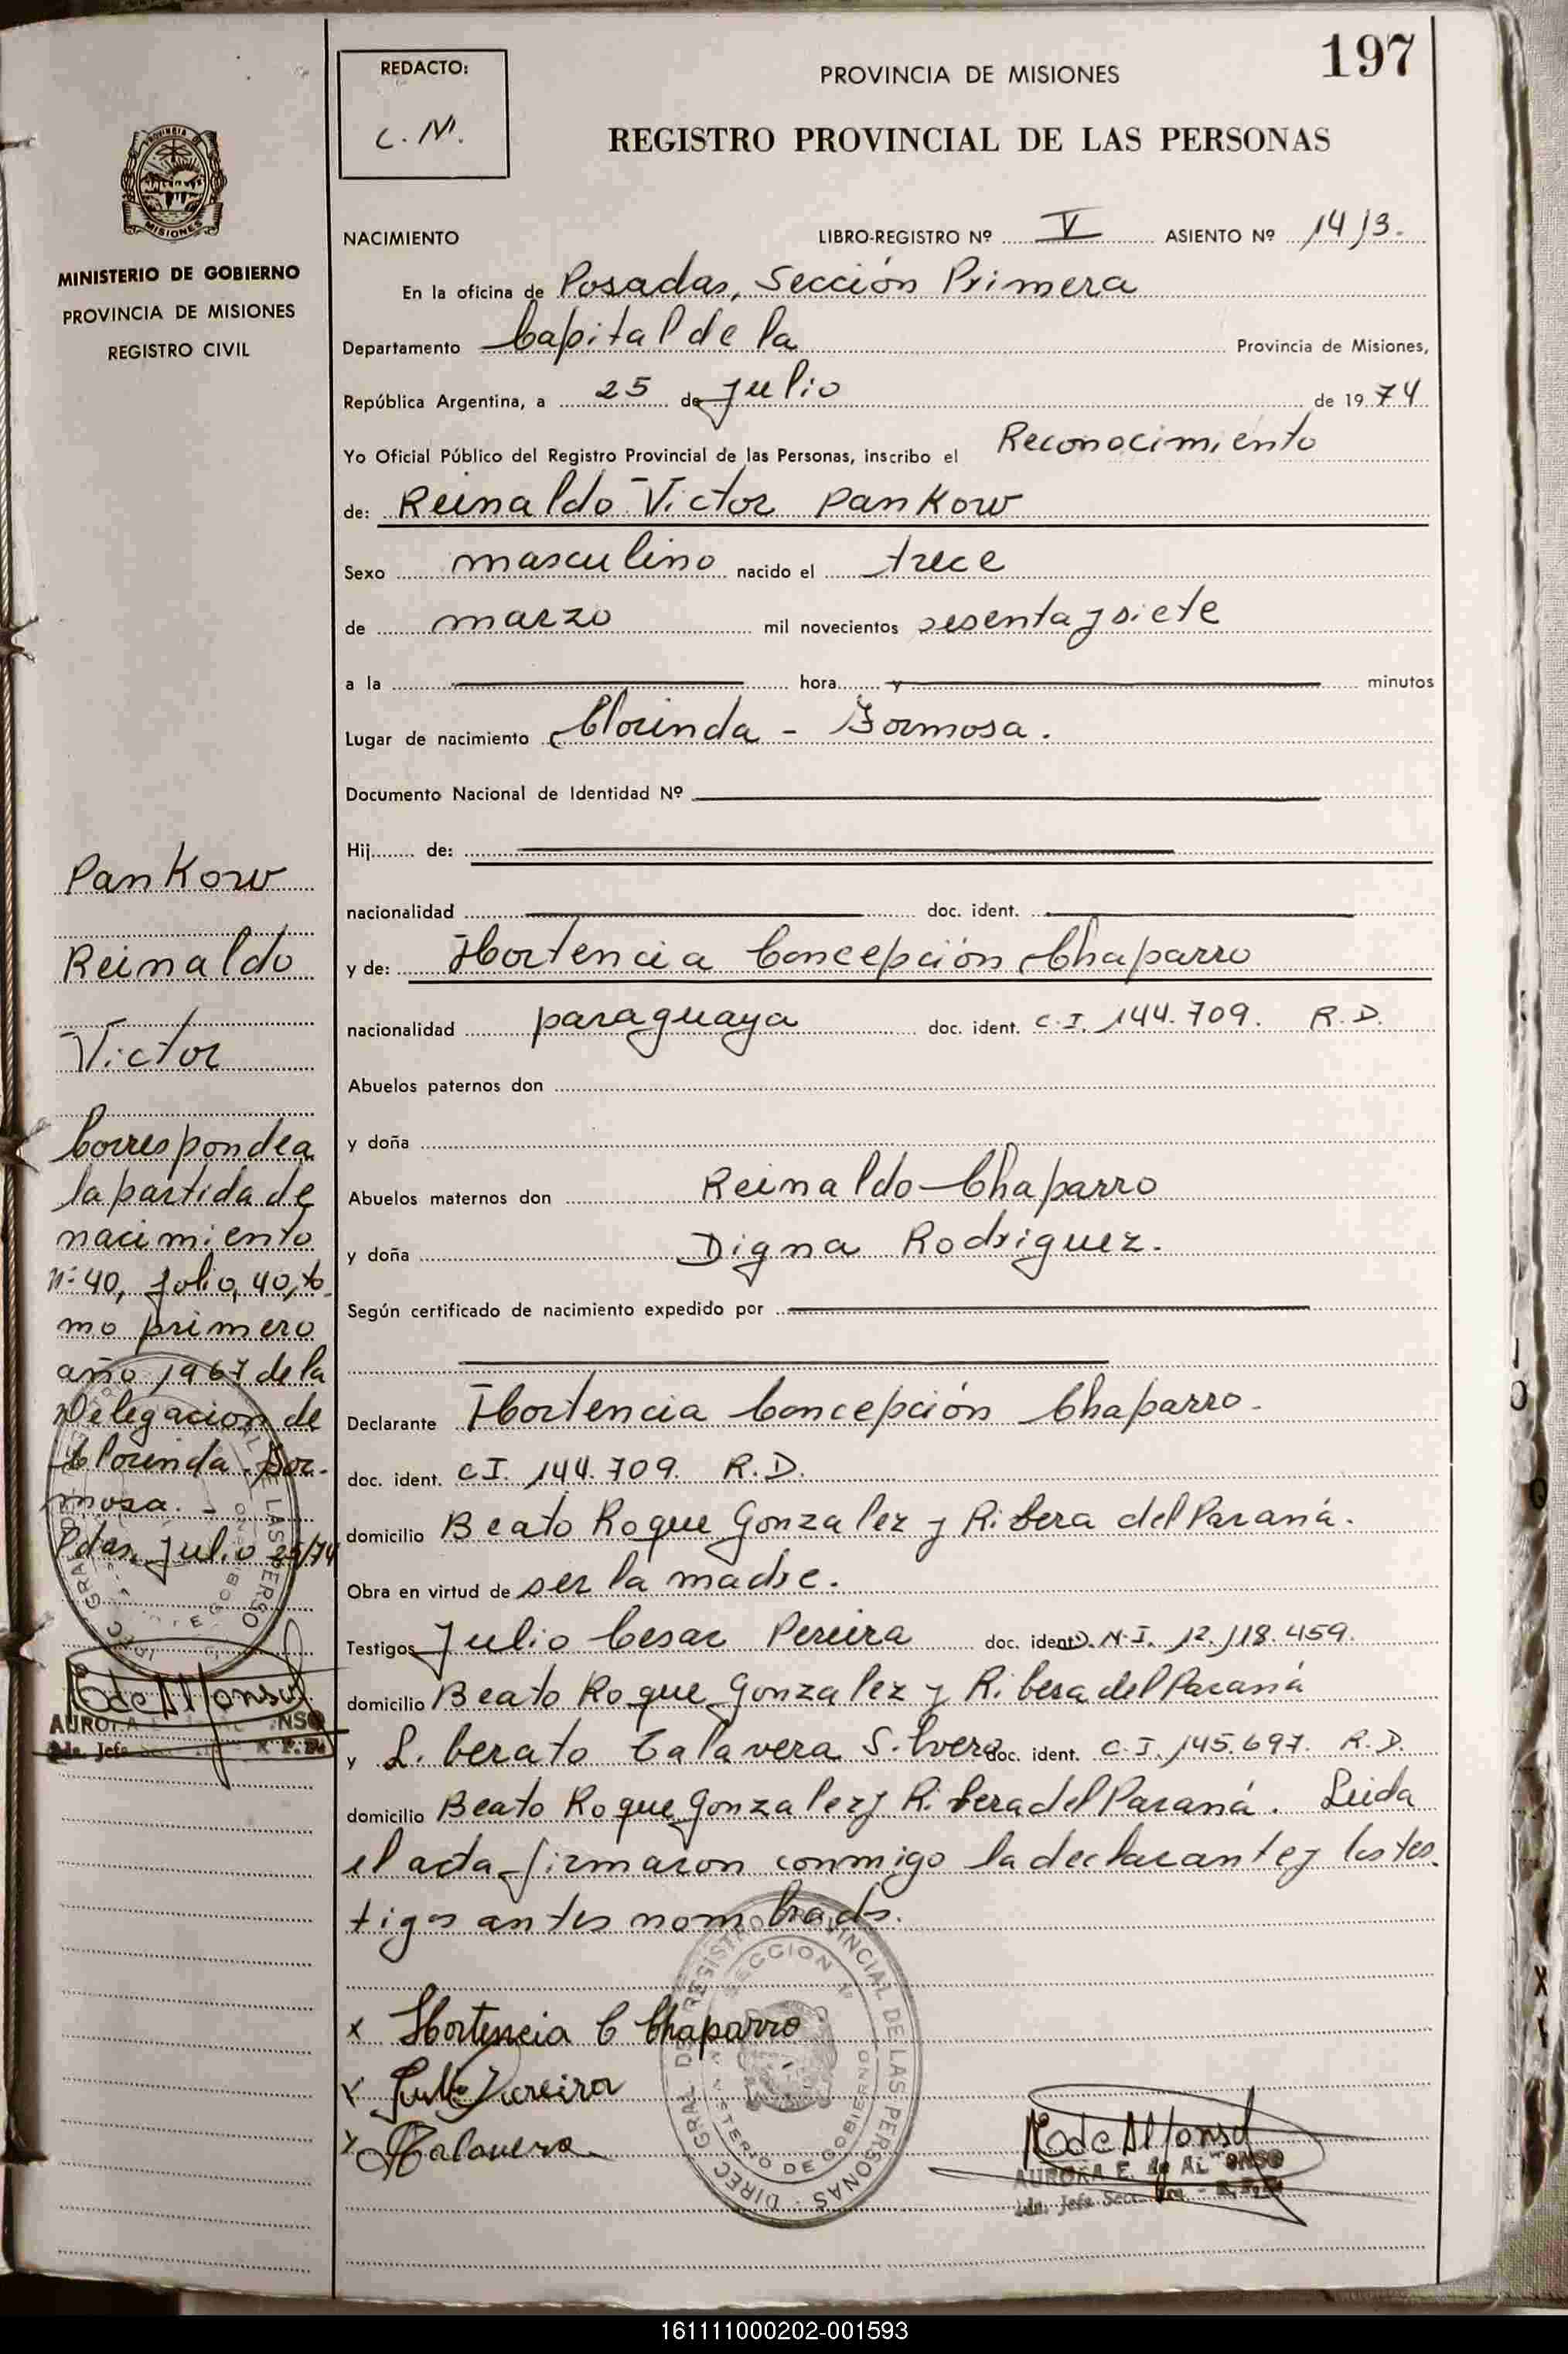 197
REDACTO:
C. M.
PROVINCIA DE MISIONES
REGISTRO PROVINCIAL DE LAS PERSONAS
PROVINCIA DE
MISIONES
MINISTERIO DE GOBIERNO
PROVINCIA DE MISIONES
REGISTRO CIVIL
NACIMIENTO LIBRO-REGISTRO Nº V ASIENTO Nº 1413.
En la oficina de Posadas, Sección Primera
Departamento Capital de la Provincia de Misiones,
República Argentina, a 25 de Julio de 1974
Yo Oficial Público del Registro Provincial de las Personas, inscribo el Reconocimiento
de: Reinaldo Victor Pankow
Sexo masculino nacido el trece
de marzo mil novecientos sesenta y siete
a la hora y minutos
Lugar de nacimiento Clorinda - Formosa.
Documento Nacional de Identidad Nº
Hij de:
nacionalidad doc. ident.
y de: Hortencia Concepción Chaparro
nacionalidad paraguaya doc. ident. C.I. 144.709. R.D.
Abuelos paternos don
y doña
Abuelos maternos don Reinaldo Chaparro
y doña Digna Rodriguez.
Según certificado de nacimiento expedido por
Declarante Hortencia Concepción Chaparro.
doc. ident. C.I. 144.709. R.D.
domicilio Beato Roque Gonzalez y Ribera del Paraná.
Obra en virtud de ser la madre.
Testigos Julio Cesar Pereira doc. ident. D.N.I. 12.118.459.
domicilio Beato Roque Gonzalez y Ribera del Paraná
y Liberato Talavera Silvero doc. ident. C.I. 145.697. R.D.
domicilio Beato Roque Gonzalez y Ribera del Paraná. Leida
el acta firmaron conmigo la declarante y los tes-
tigos antes nombrads.
x Hortencia C Chaparro
x Julio Pereira
x Talavera
DIREC. GRAL. DEL REGISTRO PROVINCIAL DE LAS PERSONAS
SECCION 1ª
MINISTERIO DE GOBIERNO
AURORA E. de ALFONSO
Pankow
Reinaldo
Victor
Corresponde a
la partida de
nacimiento
nº 40, folio, 40, to-
mo primero
año 1967 de la
Delegacion de
Clorinda. For-
mosa. -
Pdas, Julio 25/74
161111000202-001593